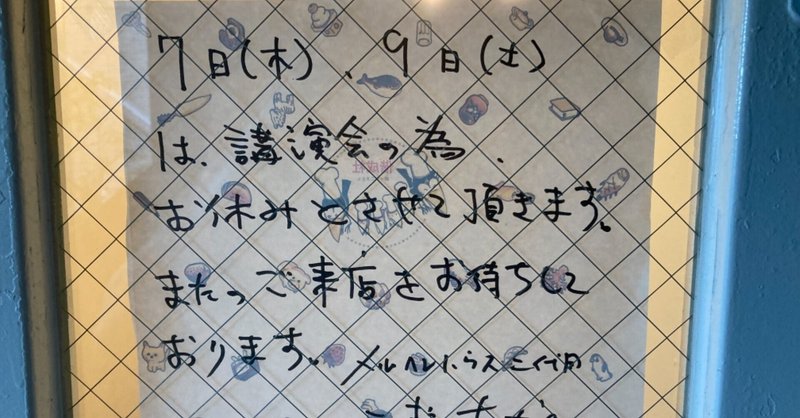 7日(木)、9日(土)
は、講演会の為、
お休みとさせて頂きます。
またのご来店をお待ちして
おります。メルヘンハウス三代目